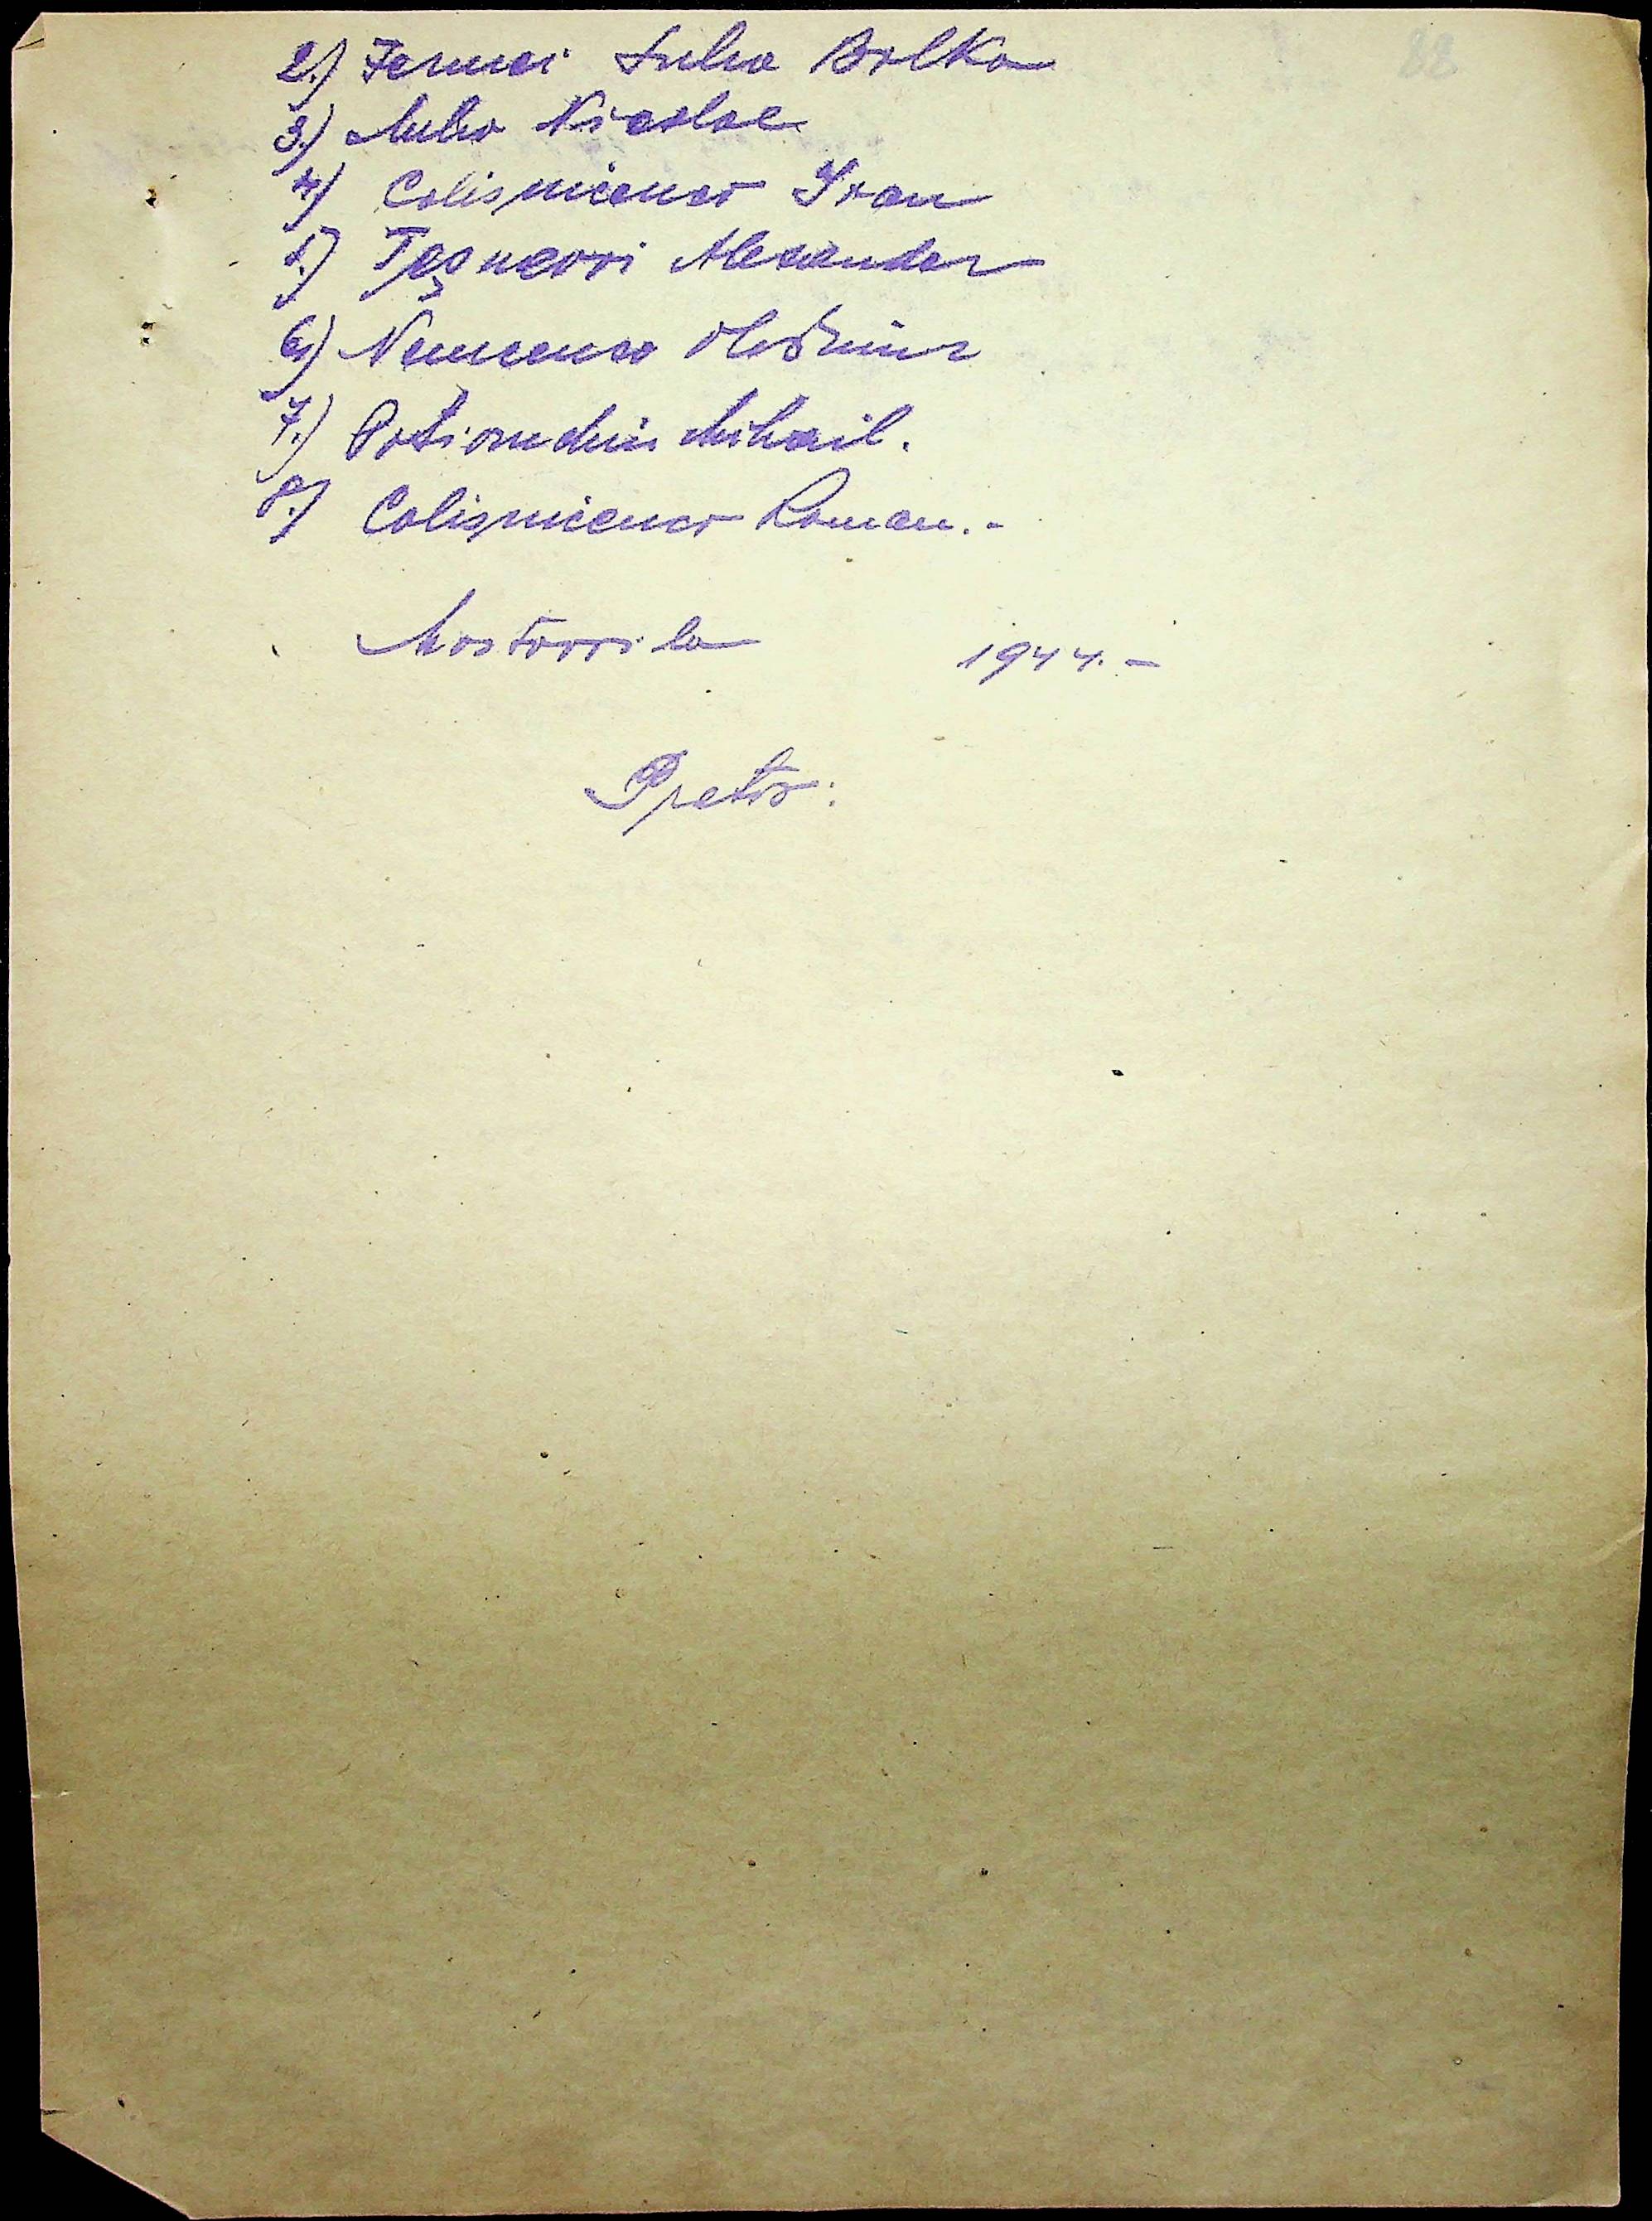 88
2.) Femei Luba Bolka
3.) Muha Nicolae
4) Colisnicenco Ivan
5.) Teșnecovi Alexander
6) Nemcenco Vladimir
7.) Potiomchin Mihail.
8.) Colisnicenco Roman.-
Mostovoi la 1944.-
Pretor: